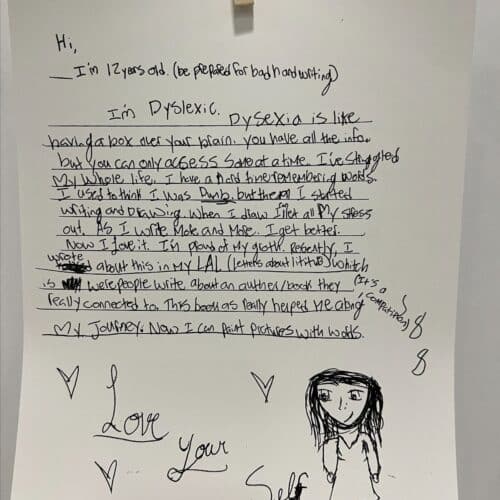 Hi,
I'm 12 years old. (be prepared for bad handwriting)
I'm Dyslexic. Dysexia is like
having a box over your brain. you have all the info.
but you can only access some at a time. I've struggled
My whole life. I have a hard time remembering words.
I used to think I was Dumb. but then I started
writing and Drawing. When I draw I let all My stress
out. As I write More and More. I get better.
Now I love it. I'm proud of My groth. Resently, I
wrote about this in MY LAL (Letters about lititure) whitch
is were people write about an author/book they
really connected to. This book as really helped me along
(It's a competition)
My Journey. Now I can paint pictures with words.
Love
Your
Self